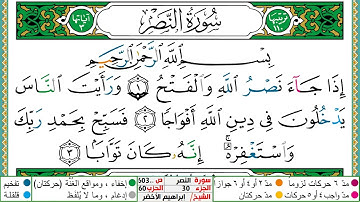 ترتيبها ١١٠
سُورَةُ النَّصْرِ
آياتها ٣
بِسْمِ اللَّهِ الرَّحْمَٰنِ الرَّحِيمِ
إِذَا جَآءَ نَصْرُ اللَّهِ وَالْفَتْحُ ١ وَرَأَيْتَ النَّاسَ
يَدْخُلُونَ فِى دِينِ اللَّهِ أَفْوَاجًا ٢ فَسَبِّحْ بِحَمْدِ رَبِّكَ
وَاسْتَغْفِرْهُ ۚ إِنَّهُۥ كَانَ تَوَّابًۢا ٣
مدّ ٦ حركات لزوماً مدّ ٢ أو ٤ أو ٦ جوازاً
مدّ واجب ٤ أو ٥ حركات مدّ حركتان
سورة النصر ص 603
الجزء 30 الحزب 60
الشيخ/ إبراهيم الأخضر
إخفاء، ومواقع الغنّة (حركتان) تفخيم
إدغام، وما لا يُلفَظ قلقلة